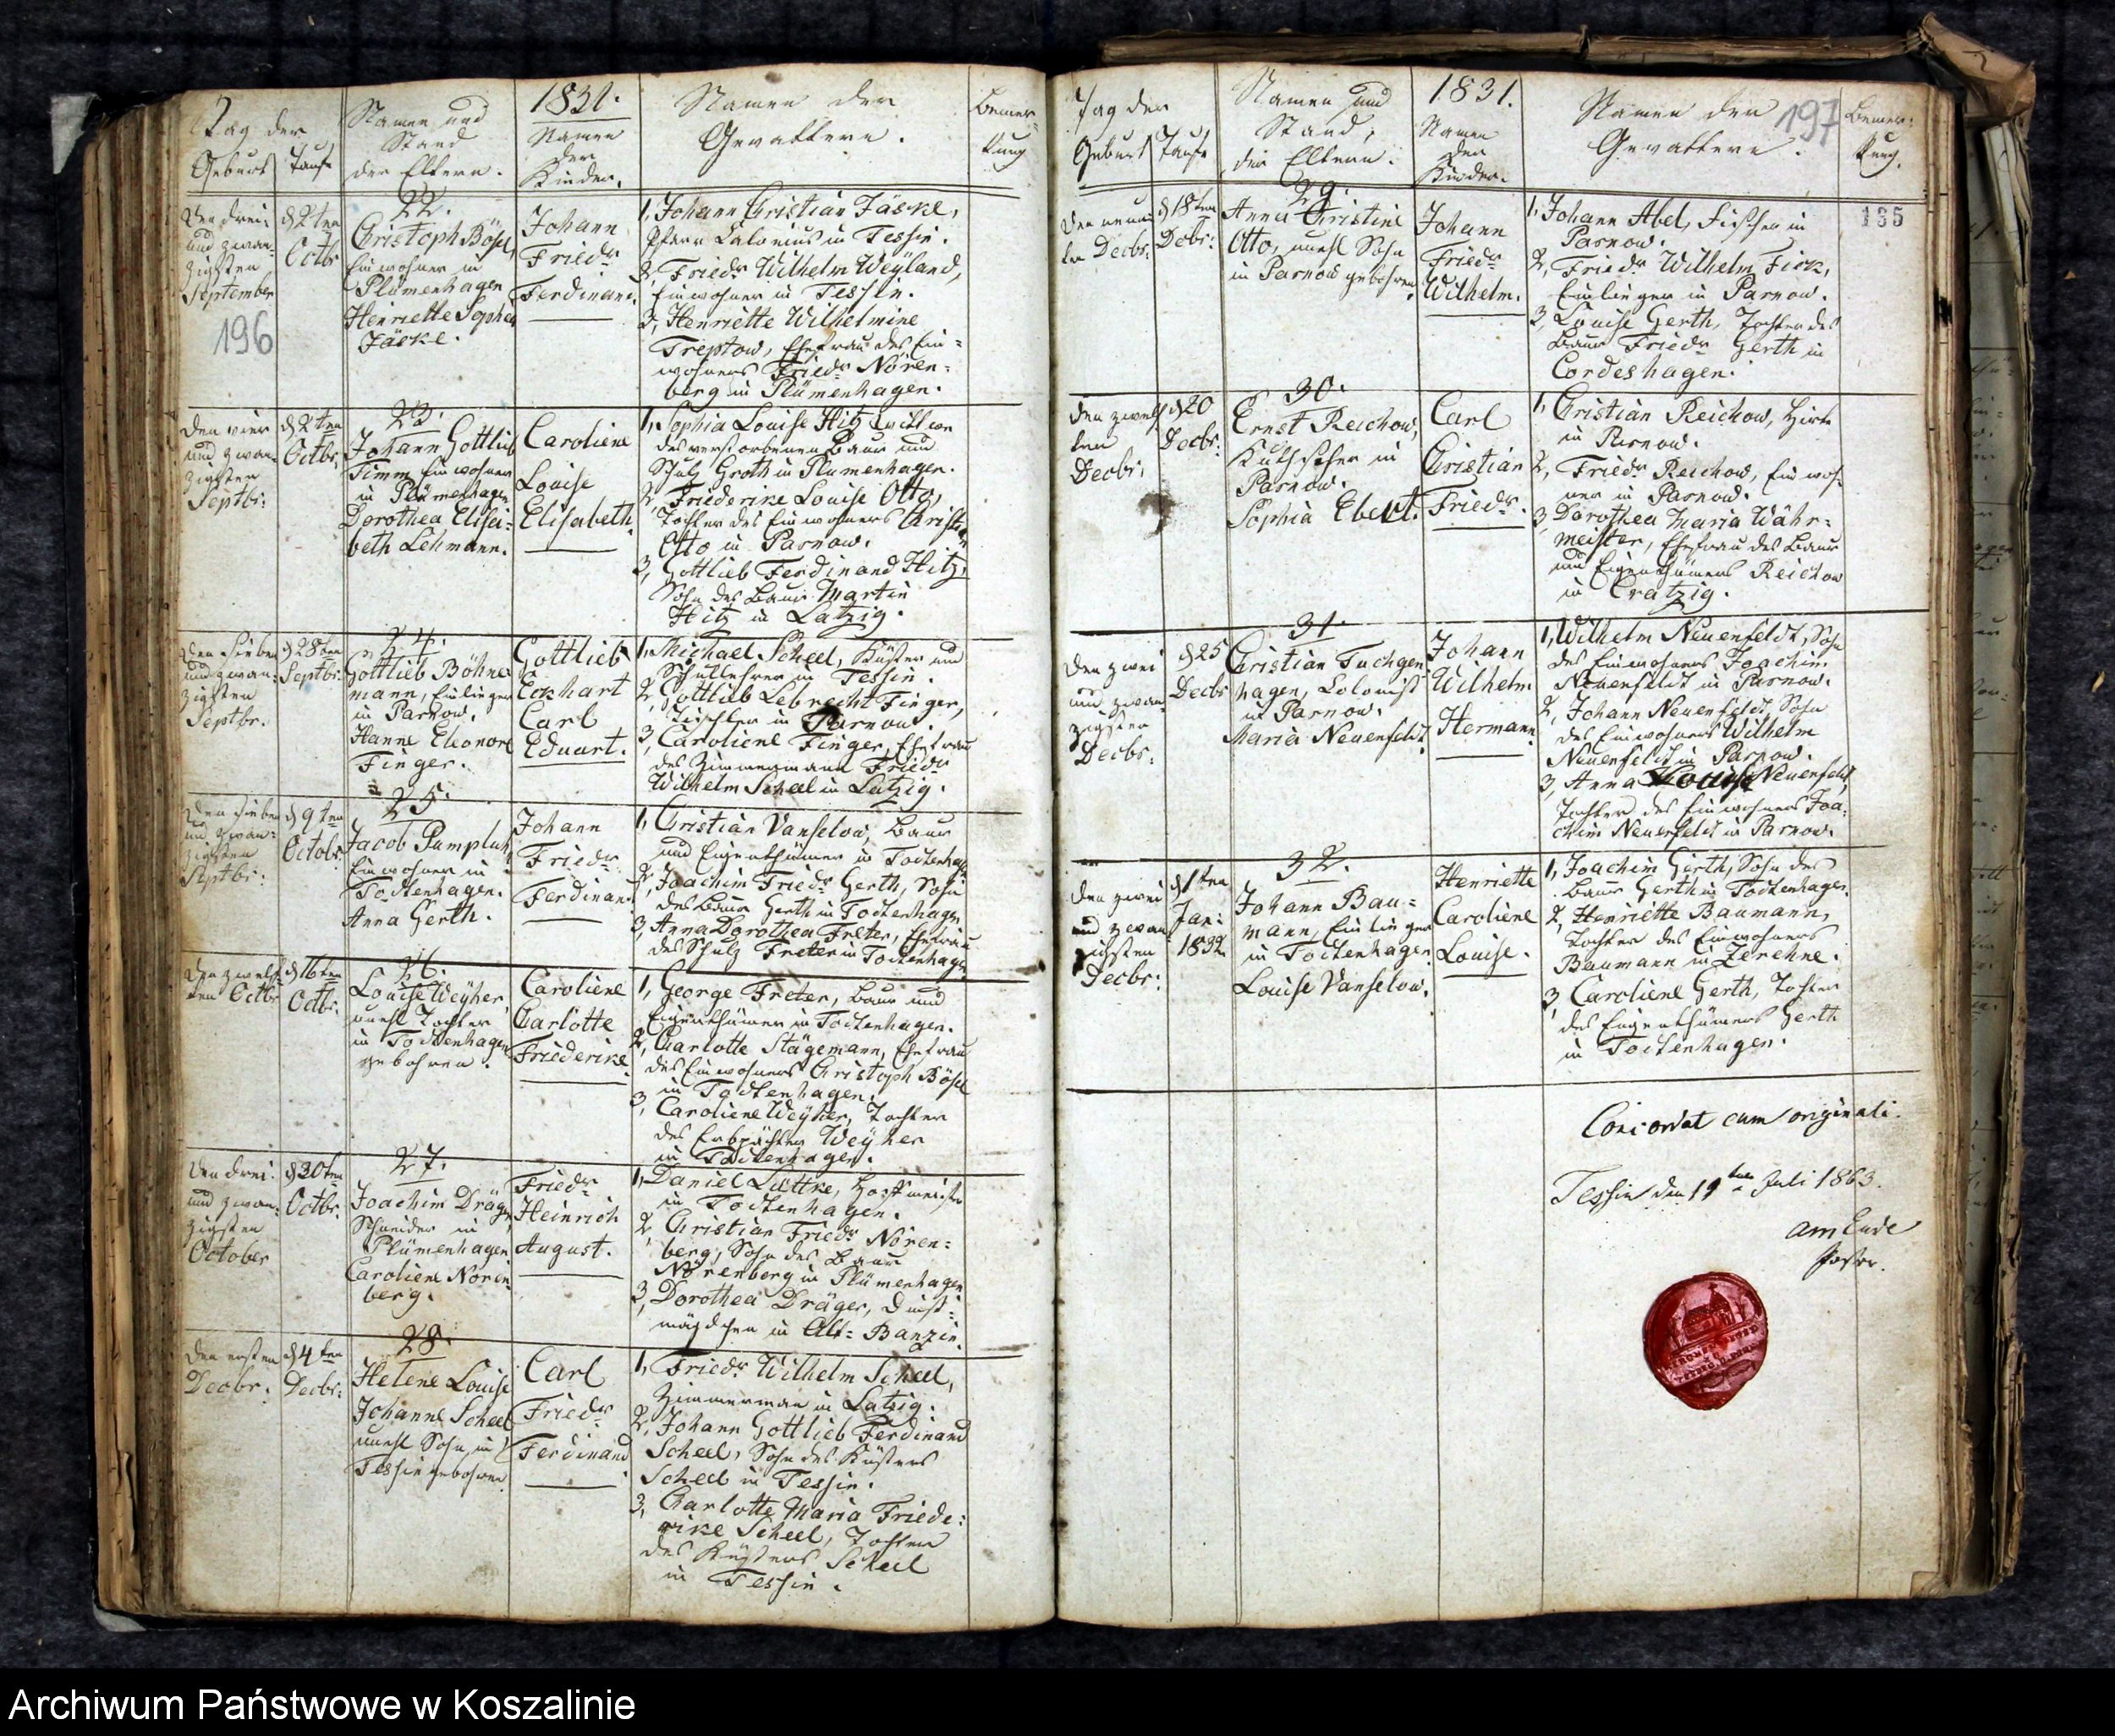 Tag der
Geburt
Taufe
Namen und
Stand
der Eltern.
1831.
Namen
der
Kinder.
Namen der
Gevattern.
Bemer-
kung
Den drei
und zwan-
zigsten
September
196
d 2ten
Octbr
22.
Christoph Bösel,
Einwohner in
Plümenhagen
Henriette Sophia
Jäske.
Johann
Friedr
Ferdinand.
1, Johann Christian Jäske,
Pfarr Colonius in Tessin.
2, Friedr Wilhelm Weyland,
Einwohner in Tessin.
3, Henriette Wilhelmine
Treptow, Ehefrau des Ein-
wohners Friedr Nören-
berg in Plümenhagen.
Den vier
und zwan-
zigsten
Septbr:
d 2ten
Octbr,
23.
Johann Gottlieb
Timm Einwohner
in Plümenhagen
Dorothea Elisa-
beth Lehmann.
Caroliene
Louise
Elisabeth.
1, Sophia Louise Hitz Wittwe
des verstorbenen Baur und
Schulz Groth in Plumenhagen.
2, Friederike Louise Otto,
Tochter des Einwohners Christian
Otto in Parnow.
3, Gottlieb Ferdinand Hitz,
Sohn des Baur Martin
Hitz in Latzig.
Den sieben
und zwan-
zigsten
Septbr.
d 28ten
Septbr:
24.
Gottlieb Böhne
mann, Einlieger
in Parnow.
Hanne Eleonore
Finger.
Gottlieb
Eckhart
Carl
Eduart.
1, Michael Scheel, Küster und
Schullehrer in Tessin.
2, Gottlieb Lebrecht Finger,
Tischler in Parnow.
3, Caroliene Finger, Ehefrau
des Zimmermann Friedr
Wilhelm Scheel in Latzig.
Den sieben
und zwan-
zigsten
Septbr:
d 9ten
Octobr.
25.
Jacob Pumpluh,
Einwohner in
Todtenhagen.
Anna Gerth.
Johann
Friedr
Ferdinand.
1, Christian Vanselow, Baur
und Eigenthümer in Todtenhagen
2, Joachim Friedr Gerth, Sohn
des Baur Gerth in Todtenhagen
3, Anna Dorothea Freter, Ehefrau
des Schulz Freter in Todtenhagen
Den zwelf
ten Octbr
d 16ten
Octbr.
26.
Louise Weyher,
unehl Tochter
in Todtenhagen
gebohren.
Caroliene
Charlotte
Friederike.
1, George Freter, Baur und
Eigenthümer in Todtenhagen.
2, Charlotte Stägemann, Ehefrau
des Einwohners Christoph Bösel
in Todtenhagen.
3, Caroliene Weyher, Tochter
des Erbpächter Weyher
in Todtenhagen.
Den drei
und zwan-
zigsten
October
d 30ten
Octbr.
27.
Joachim Dräger
Schneider in
Plümenhagen
Caroliene Noren-
berg.
Friedr
Heinrich
August.
1, Daniel Lüttke, Hoffmeister
in Todtenhagen.
2, Christian Friedr Nören-
berg, Sohn des Baur
Nörenberg in Plümenhagen
3, Dorothea Dräger, Dienst-
mädchen in Alt-Banzin.
Den ersten
Decbr.
d 4ten
Decbr:
28.
Helene Louise
Johanne Scheel
unehl Sohn in
Tessin gebohren
Carl
Friedr
Ferdinand.
1, Friedr Wilhelm Scheel,
Zimmerman in Latzig.
2, Johann Gottlieb Ferdinand
Scheel, Sohn des Küsters
Scheel in Tessin.
3, Charlotte Maria Friede-
rike Scheel, Tochter
des Küsters Scheel
in Tessin.
Tag der
Geburt
Taufe
Namen und
Stand,
der Eltern.
1831.
Namen
der
Kinder.
Namen der
Gevattern.
197
Bemer-
kung.
185
Den neun
ten Decbr.
d 18ten
Decbr:
29.
Anna Christine
Otto, unehl Sohn
in Parnow gebohren.
Johann
Friedr
Wilhelm.
1, Johann Abel, Fischer in
Parnow.
2, Friedr Wilhelm Fick,
Einlieger in Parnow.
3, Louise Gerth, Tochter des
Baur Friedr Gerth in
Cordeshagen.
Den zwelf
ten
Decbr,
d 20
Decbr:
30.
Ernst Reichow,
Kuthscher in
Parnow.
Sophia Ebert.
Carl
Christian
Friedr.
1, Christian Reichow, Hirte
in Parnow.
2, Friedr Reichow, Einwoh-
ner in Parnow.
3, Dorothea Maria Währ-
meister, Ehefrau des Baur
und Eigenthümers Reichow
in Cratzig.
Den zwei
und zwan-
zigsten
Decbr:
d 25
Decbr
31.
Christian Tuchgen
hagen, Colonist
in Parnow.
Maria Neuenfeldt
Johann
Wilhelm
Hermann.
1, Wilhelm Neuenfeldt, Sohn
des Einwohners Joachim
Neuenfeldt in Parnow.
2, Johann Neuenfeldt, Sohn
des Einwohners Wilhelm
Neuenfeldt in Parnow.
3, Anna Louise Neuenfeldt,
Tochter des Einwohners Joa-
chim Neuenfeldt in Parnow.
Den zwei
und zwan
zigsten
Decbr:
d 1ten
Jan:
1832.
32.
Johann Bau-
mann, Einlieger
in Todtenhagen
Louise Vanselow.
Henriette
Caroliene
Louise.
1, Joachim Gerth, Sohn des
Baur Gerth in Todtenhagen.
2, Henriette Baumann,
Tochter des Einwohners
Baumann in Zerehne.
3, Caroliene Gerth, Tochter
des Eigenthümers Gerth
in Todtenhagen.
Concordat cum originali.
Tessin den 19ten Juli 1863.
am Ende
Pastor.
Archiwum Państwowe w Koszalinie